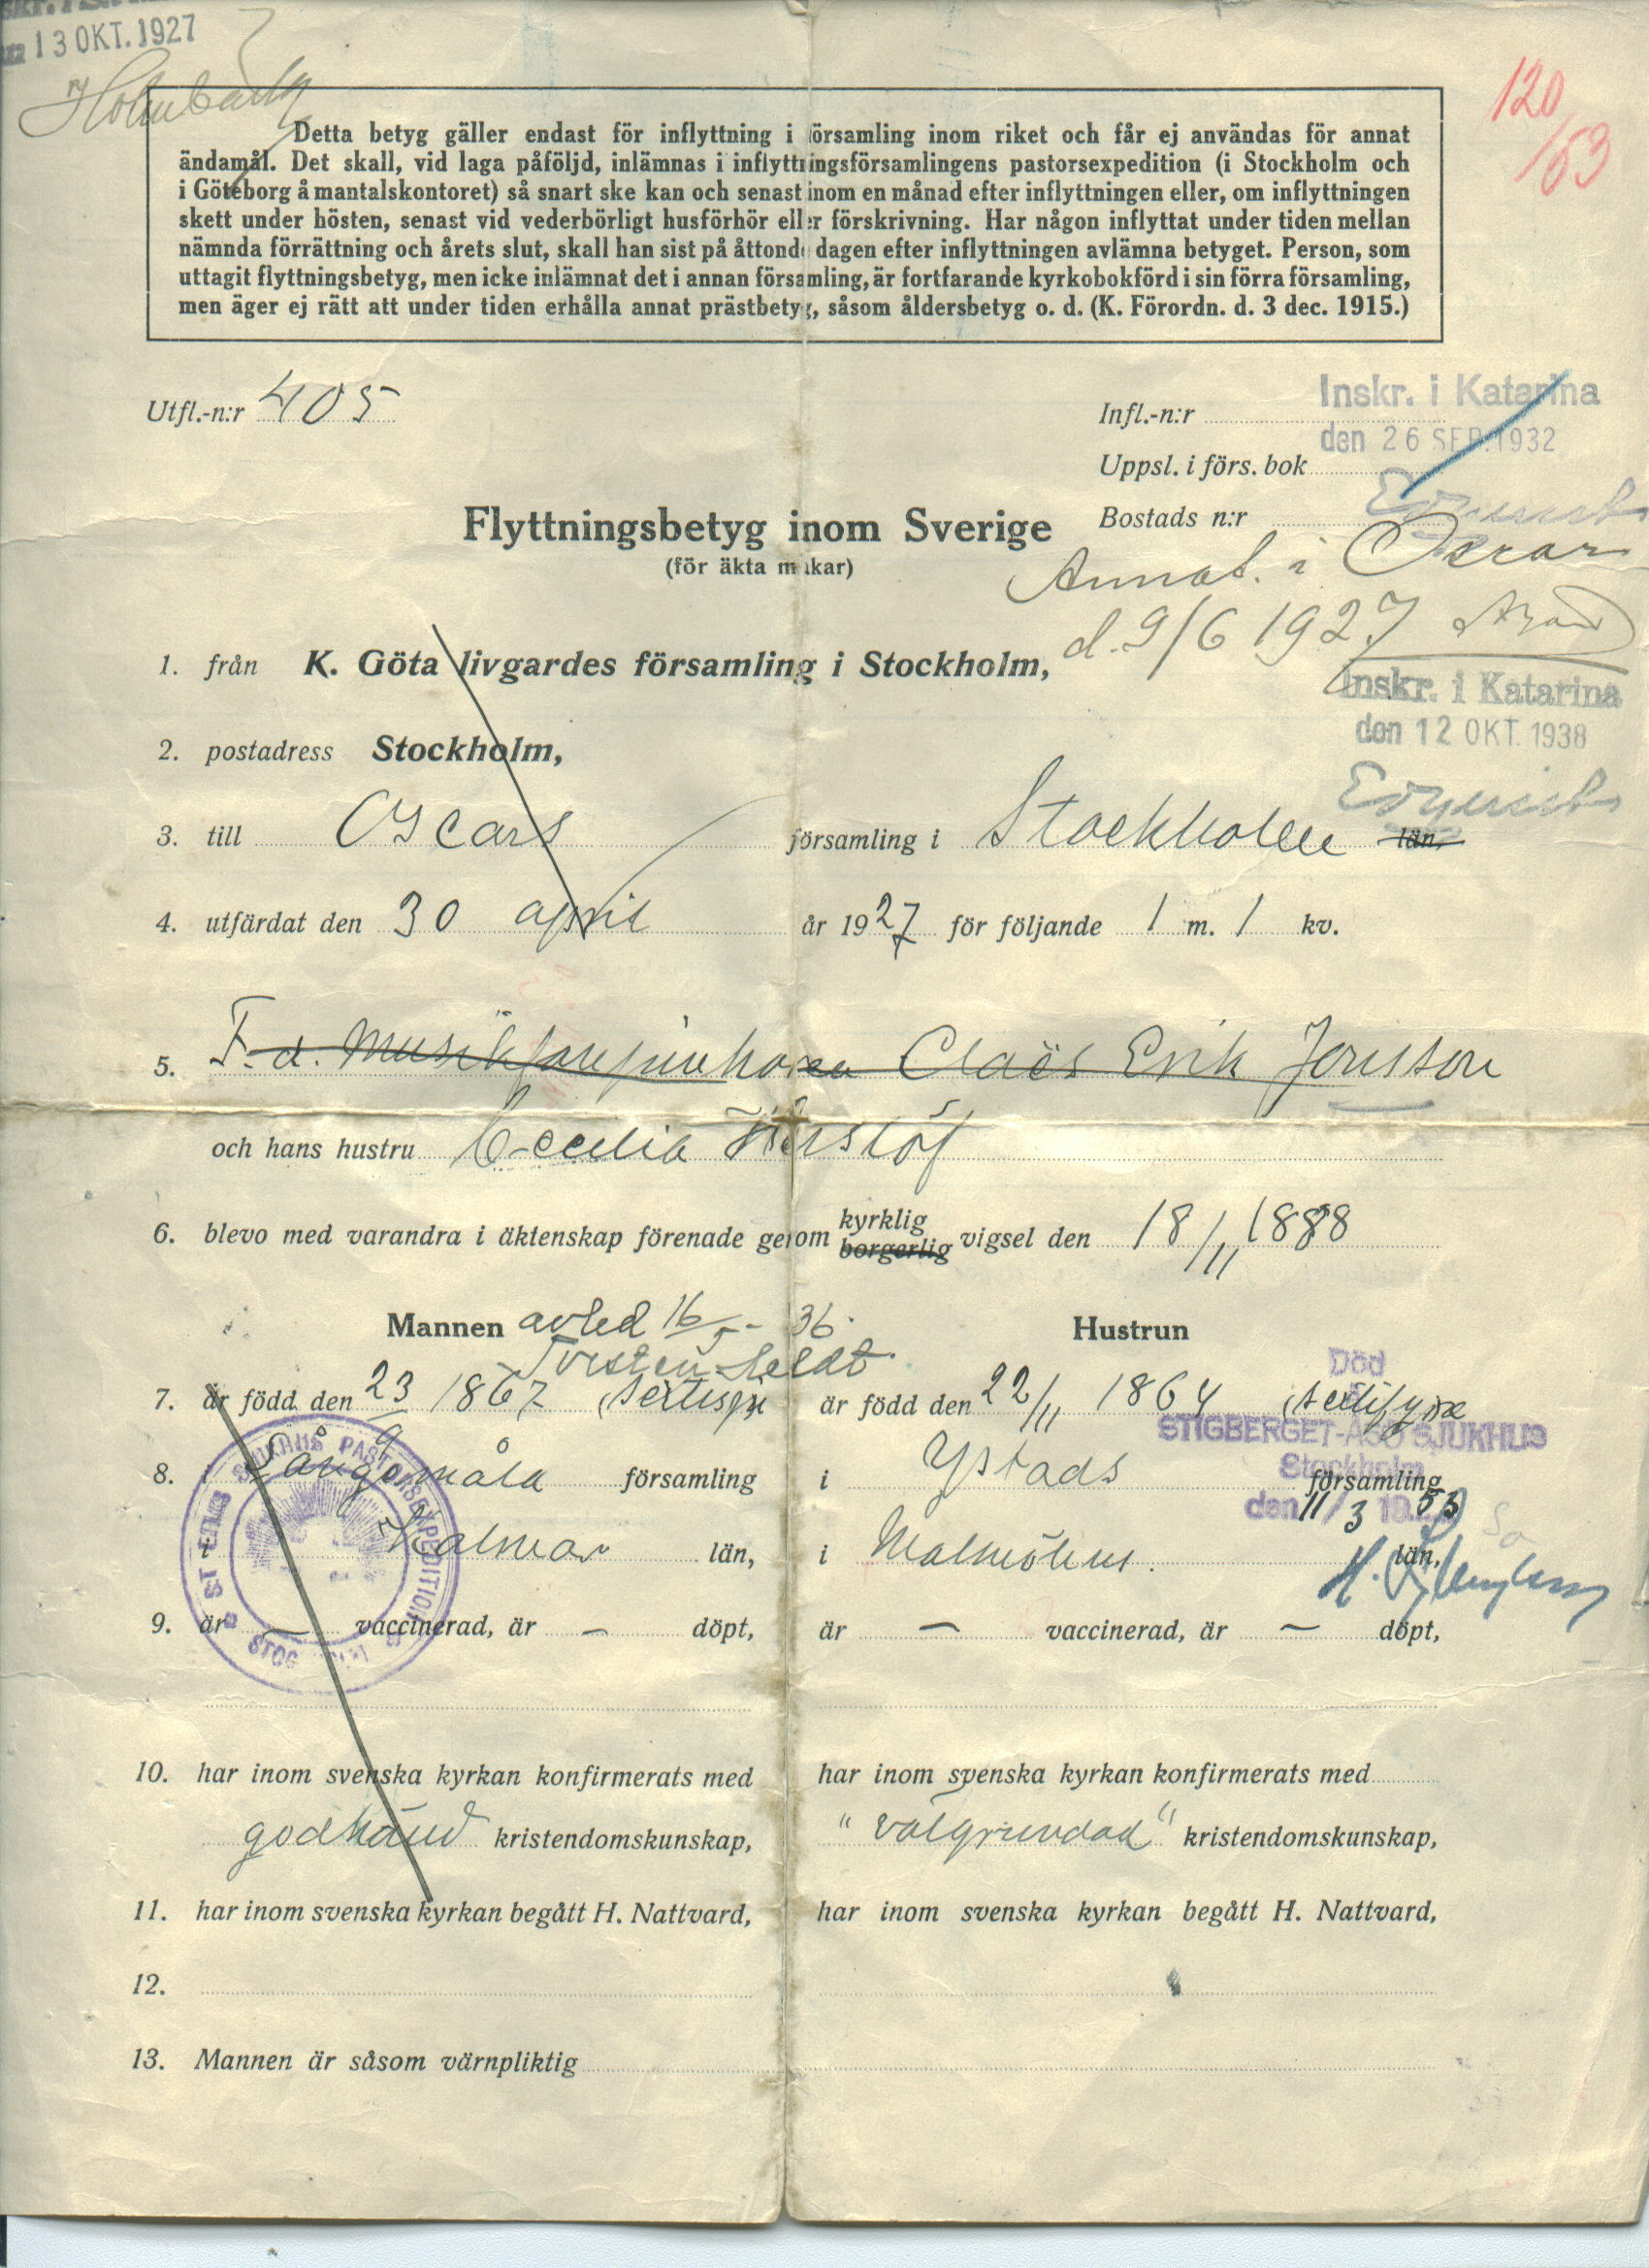 13 OKT. 1927
120/53
Detta betyg gäller endast för inflyttning i församling inom riket och får ej användas för annat
ändamål. Det skall, vid laga påföljd, inlämnas i inflyttningsförsamlingens pastorsexpedition (i Stockholm och
i Göteborg å mantalskontoret) så snart ske kan och senast inom en månad efter inflyttningen eller, om inflyttningen
skett under hösten, senast vid vederbörligt husförhör eller förskrivning. Har någon inflyttat under tiden mellan
nämnda förrättning och årets slut, skall han sist på åttonde dagen efter inflyttningen avlämna betyget. Person, som
uttagit flyttningsbetyg, men icke inlämnat det i annan församling, är fortfarande kyrkobokförd i sin förra församling,
men äger ej rätt att under tiden erhålla annat prästbetyg, såsom åldersbetyg o. d. (K. Förordn. d. 3 dec. 1915.)
Utfl.-n:r 405
Infl.-n:r
Inskr. i Katarina
den 26 SEP. 1932
Uppsl. i förs. bok
Bostads n:r
Flyttningsbetyg inom Sverige
(för äkta makar)
Annot. i Oscars
d. 9/6 1927
1. från K. Göta livgardes församling i Stockholm,
Inskr. i Katarina
den 12 OKT. 1938
2. postadress Stockholm,
3. till Oscars församling i Stockholm län,
4. utfärdat den 30 april år 1927 för följande 1 m. 1 kv.
5. F. d. Claës Erik Jonsson
och hans hustru Cecilia
6. blevo med varandra i äktenskap förenade genom kyrklig borgerlig vigsel den 18/11 1888
Mannen avled 16/5 - 36.
Hustrun
Torsten
Död
7. är född den 23/9 1867 är född den 22/11 1864
STIGBERGET-ÅSÖ SJUKHUS
Stockholm
8. i Långemåla församling i Ystads församling
den 11/3 1953
i Kalmar län, i Malmöhus län,
9. är — vaccinerad, är — döpt, är — vaccinerad, är — döpt,
SJUKHUS PASTORSEXPEDITION
10. har inom svenska kyrkan konfirmerats med har inom svenska kyrkan konfirmerats med
godkänd kristendomskunskap, "välgrundad" kristendomskunskap,
11. har inom svenska kyrkan begått H. Nattvard, har inom svenska kyrkan begått H. Nattvard,
12.
13. Mannen är såsom värnpliktig